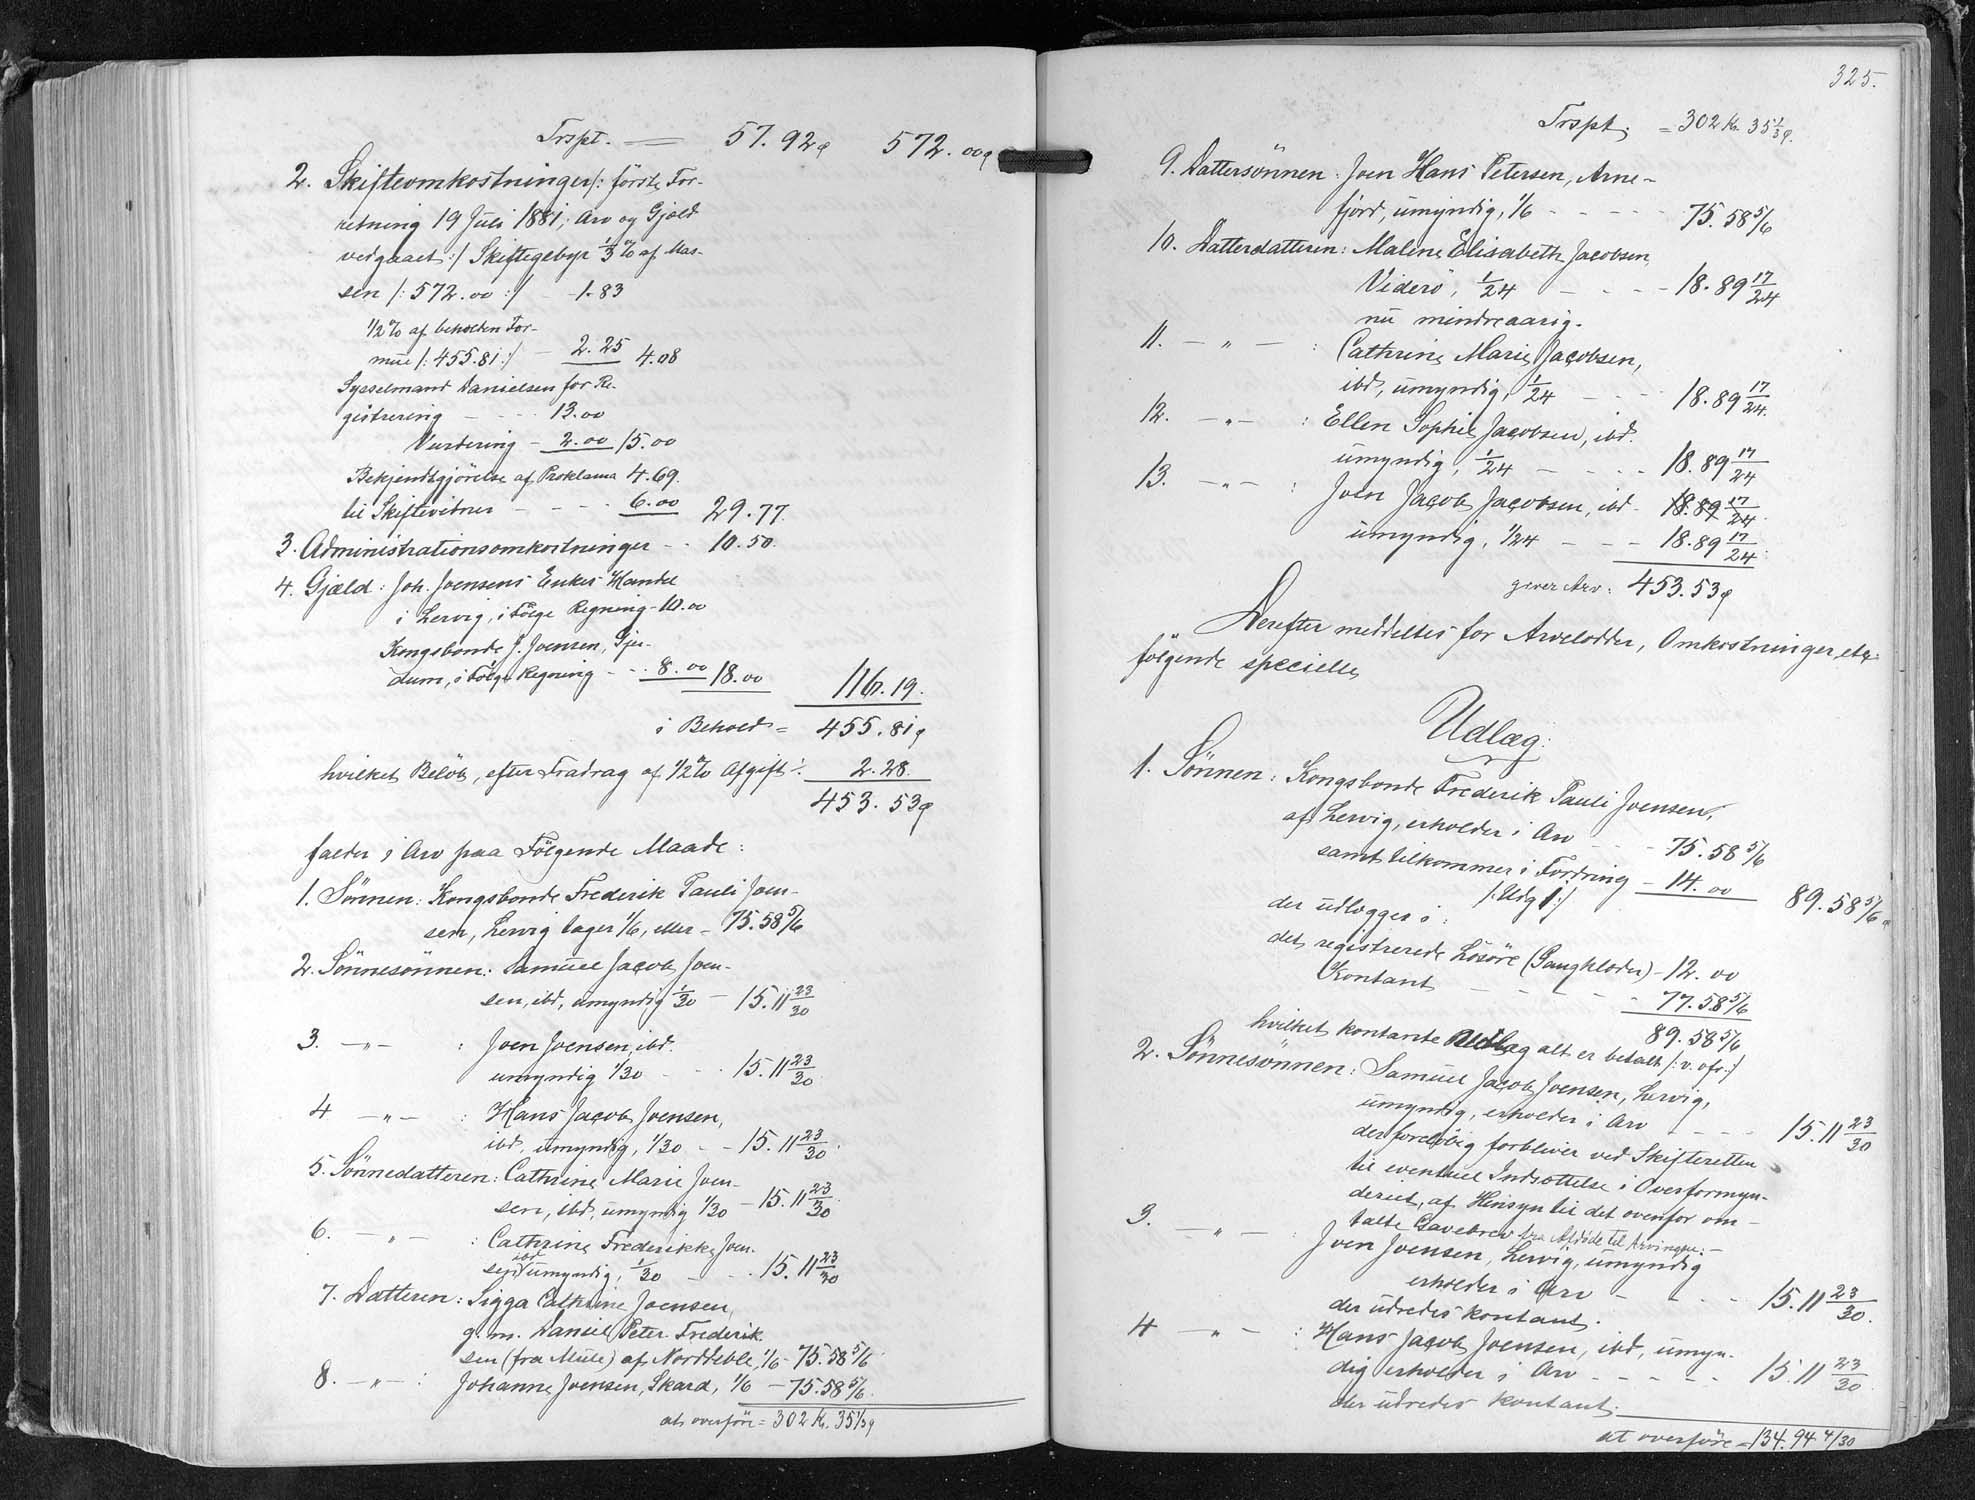 Trspt. = 57.92ø 572.00ø
2. Skifteomkostninger /: första For-
retning 19 Juli 1881; Arv og Gjæld
vedgaaet :/ Skiftegebyr 1/3 % af Mas-
sen /: 572.00 :/ - 1.83
1/2 % af beholden For-
mue /: 455.81 :/ - 2.25 4.08
Sysselmand Danielsen for Re-
gistrering - - - 13.00
Vurdering - 2.00 15.00
Bekjendtgjörelse af Proklama 4.69.
til Skiftevitner - - - - 6.00 29.77.
3. Administrationsomkostninger - - 10.50.
4. Gjæld: Joh. Joensens Enkes Handel
i Lervig, i Fölge Regning - 10.00
Kongsbonde J. Joensen, Gjer-
dum, i Fölge Regning - - 8.00 18.00 116.19.
i Behold = 455.81ø
hvilket Belöb, efter Fradrag af 1/2 % Afgift ÷ 2.28.
453.53ø
falder i Arv paa Fölgende Maade:
1. Sönnen: Kongsbonde Frederik Pauli Joen-
sen, Lervig tager 1/6, eller - 75.58 5/6
2. Sönnesönnen: Samuel Jacob Joen-
sen, ibd, umyndig 1/30 - 15.11 23/30
3. -"- : Joen Joensen, ibd.
umyndig 1/30 - - - 15.11 23/30.
4 -"- : Hans Jacob Joensen,
ibd, umyndig, 1/30 - - 15.11 23/30.
5. Sönnedatteren: Cathrine Marie Joen-
sen, ibd, umyndig 1/30 - 15.11 23/30.
6. -"- : Cathrine Frederikke Joen-
sen, ibd umyndig, 1/30 - - - 15.11 23/30
7. Datteren: Sigga Cathrine Joensen,
g. m. Daniel Peter Frederik-
sen (fra Mule) af Norddeble, 1/6 - 75.58 5/6
8. -"- : Johanne Joensen, Skard, 1/6 - 75.58 5/6.
at overföre = 302 Kr. 35 1/3ø
325.
Trspt. = 302 Kr. 35 1/3ø.
9. Dattersönnen: Joen Hans Petersen, Arne-
fjord, umyndig, 1/6 - - - - - 75.58 5/6
10. Datterdatteren: Malene Elisabeth Jacobsen,
Viderö, 1/24 - - - - 18.89 17/24
nu mindreaarig.
11. -"- : Cathrine Marie Jacobsen,
ibd, umyndig, 1/24 - - - 18.89 17/24.
12. -"- : Ellen Sophie Jacobsen, ibd.
umyndig, 1/24 - - - - 18.89 17/24
13. -"- : Joen Jacob Jacobsen, ibd - 18.89 17/24.
umyndig, 1/24 - - - 18.89 17/24.
giver Arv: 453.53ø
Derefter meddeltes for Arvelodder, Omkostninger etc:
fölgende specielle
Udlæg:
1. Sönnen: Kongsbonde Frederik Pauli Joensen,
af Lervig, erholder i Arv - - - 75.58 5/6
samt tilkommer i Fordring - 14.00 89.58 5/6ø
/: Udg 1 :/
der udlægges i:
det registrerede Lösöre (Gangklæder) - 12.00
Kontant - - - - - - 77.58 5/6
89.58 5/6
hvilket kontante Udlæg alt er betalt /: v. ofr. :/
2. Sönnesönnen: Samuel Jacob Joensen, Lervig,
umyndig, erholder i Arv - - - - 15.11 23/30
der foreløbig forbliver ved Skifteretten
til eventuel Indsættelse i Overformyn-
deriet, af Hensyn til det ovenfor om-
talte Gavebrev fra Afdöde til Arvingen: -
3. -"- : Joen Joensen, Lervig, umyndig
erholder i Arv - - - - 15.11 23/30.
der udredes kontant.
4 -"- : Hans Jacob Joensen, ibd, umyn-
dig erholder i Arv - - - - - 15.11 23/30
der udredes kontant.
at overföre = 134.94 4/30